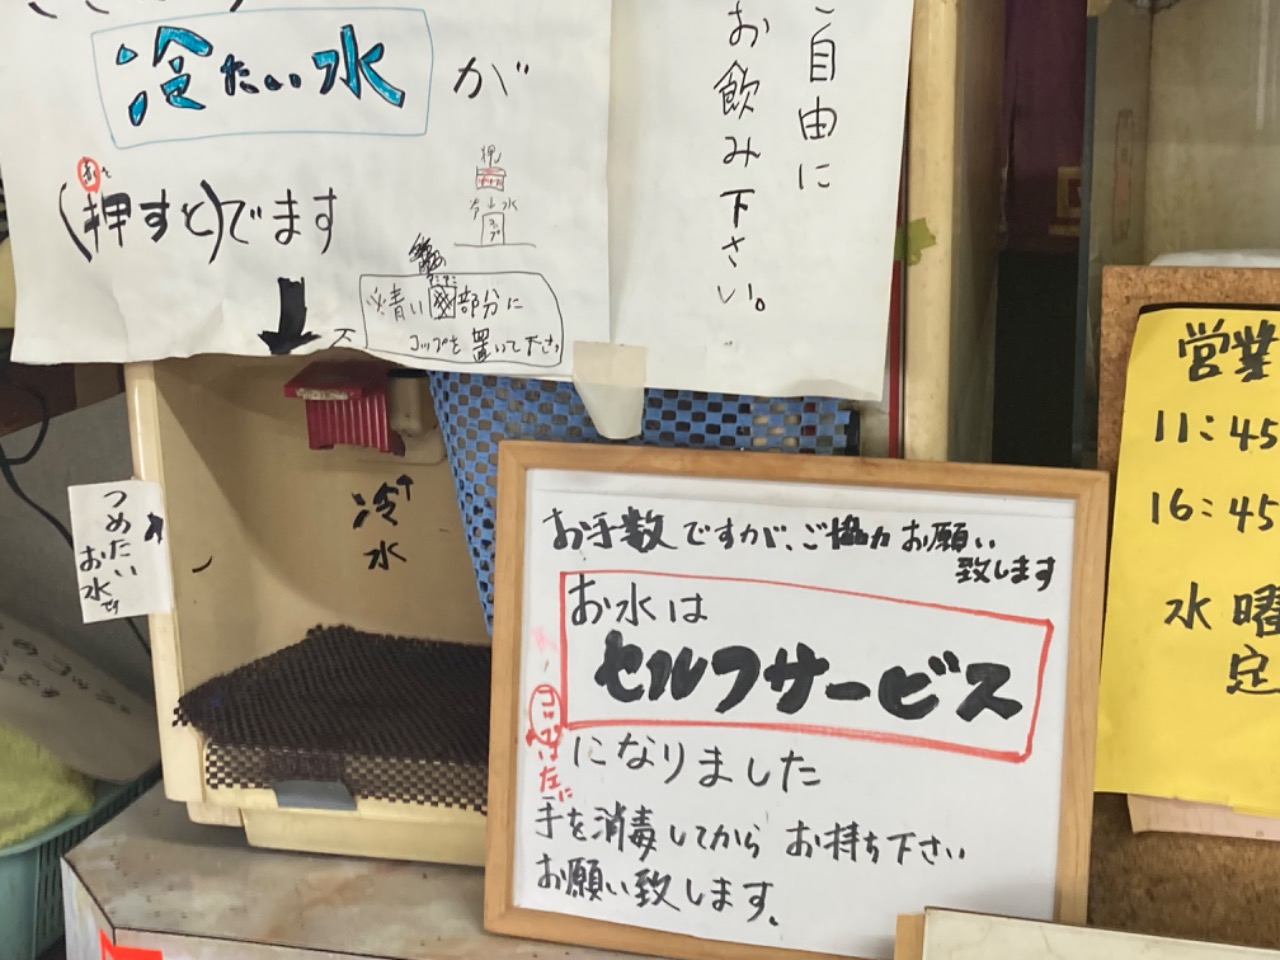 冷たい水が
赤を
(押すと)でます
押ス
冷↓水
コップ
※青い部分に
コップを置いて下さい
自由に
お飲み下さい。
つめたい
お水です
冷
水
お手数ですが、ご協力お願い
致します
お水は
セルフサービス
になりました
コップは左に
手を消毒してからお持ち下さい
お願い致します。
営業
11:45
16:45
水曜
定